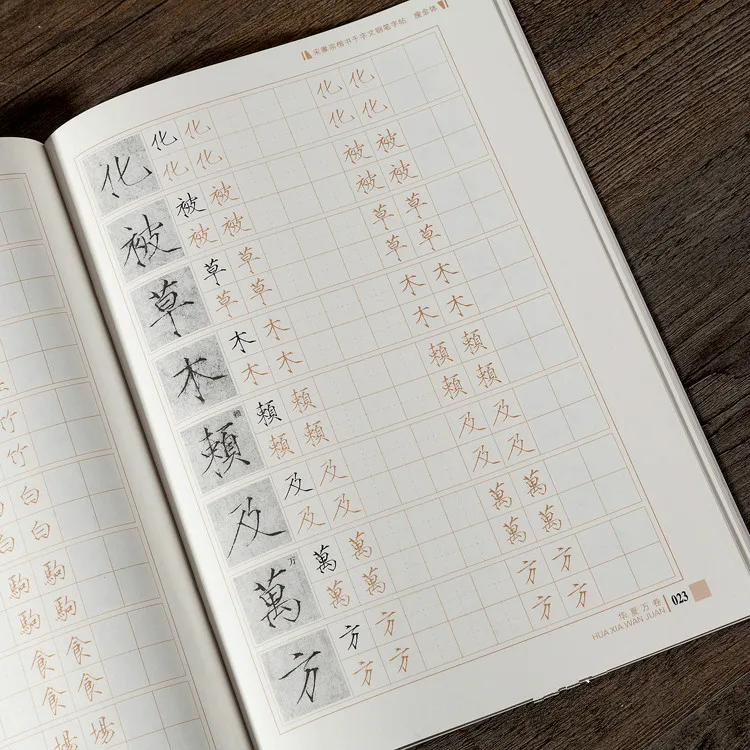 竹
竹
白 白
白 白
駒 駒
駒 駒
食 食
食 食
場 場
宋徽宗楷书千字文钢笔字帖 瘦金体
化 化 化 化 化
化 化 化 化
被 被 被 被 被
被 被 被 被
草 草 草 草 草
草 草 草 草
木 木 木 木 木
木 木 木 木
賴 賴 賴 賴 賴
賴 賴 賴 賴
及 及 及 及 及
及 及 及 及
萬 万 萬 萬 萬 萬
萬 萬 萬 萬
方 方 方 方 方
方 方 方 方
华夏万卷
HUA XIA WAN JUAN
023